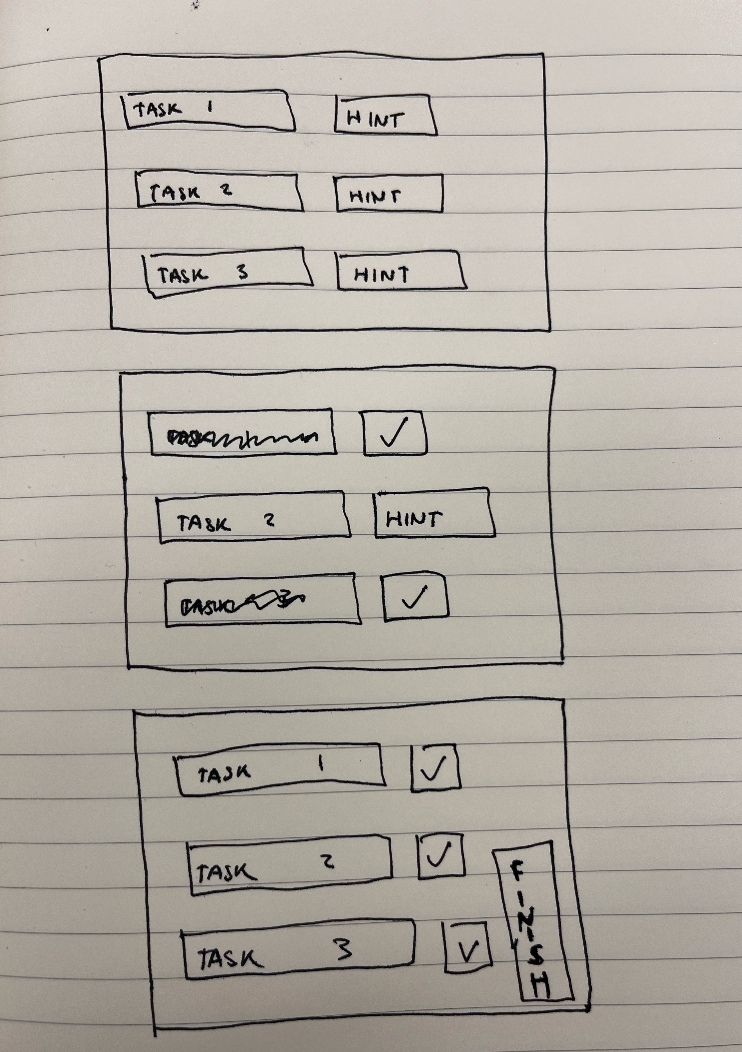 TASK 1 HINT
TASK 2 HINT
TASK 3 HINT
TASK ✓
TASK 2 HINT
TASK 3 ✓
TASK 1 ✓
TASK 2 ✓
TASK 3 ✓
FINISH